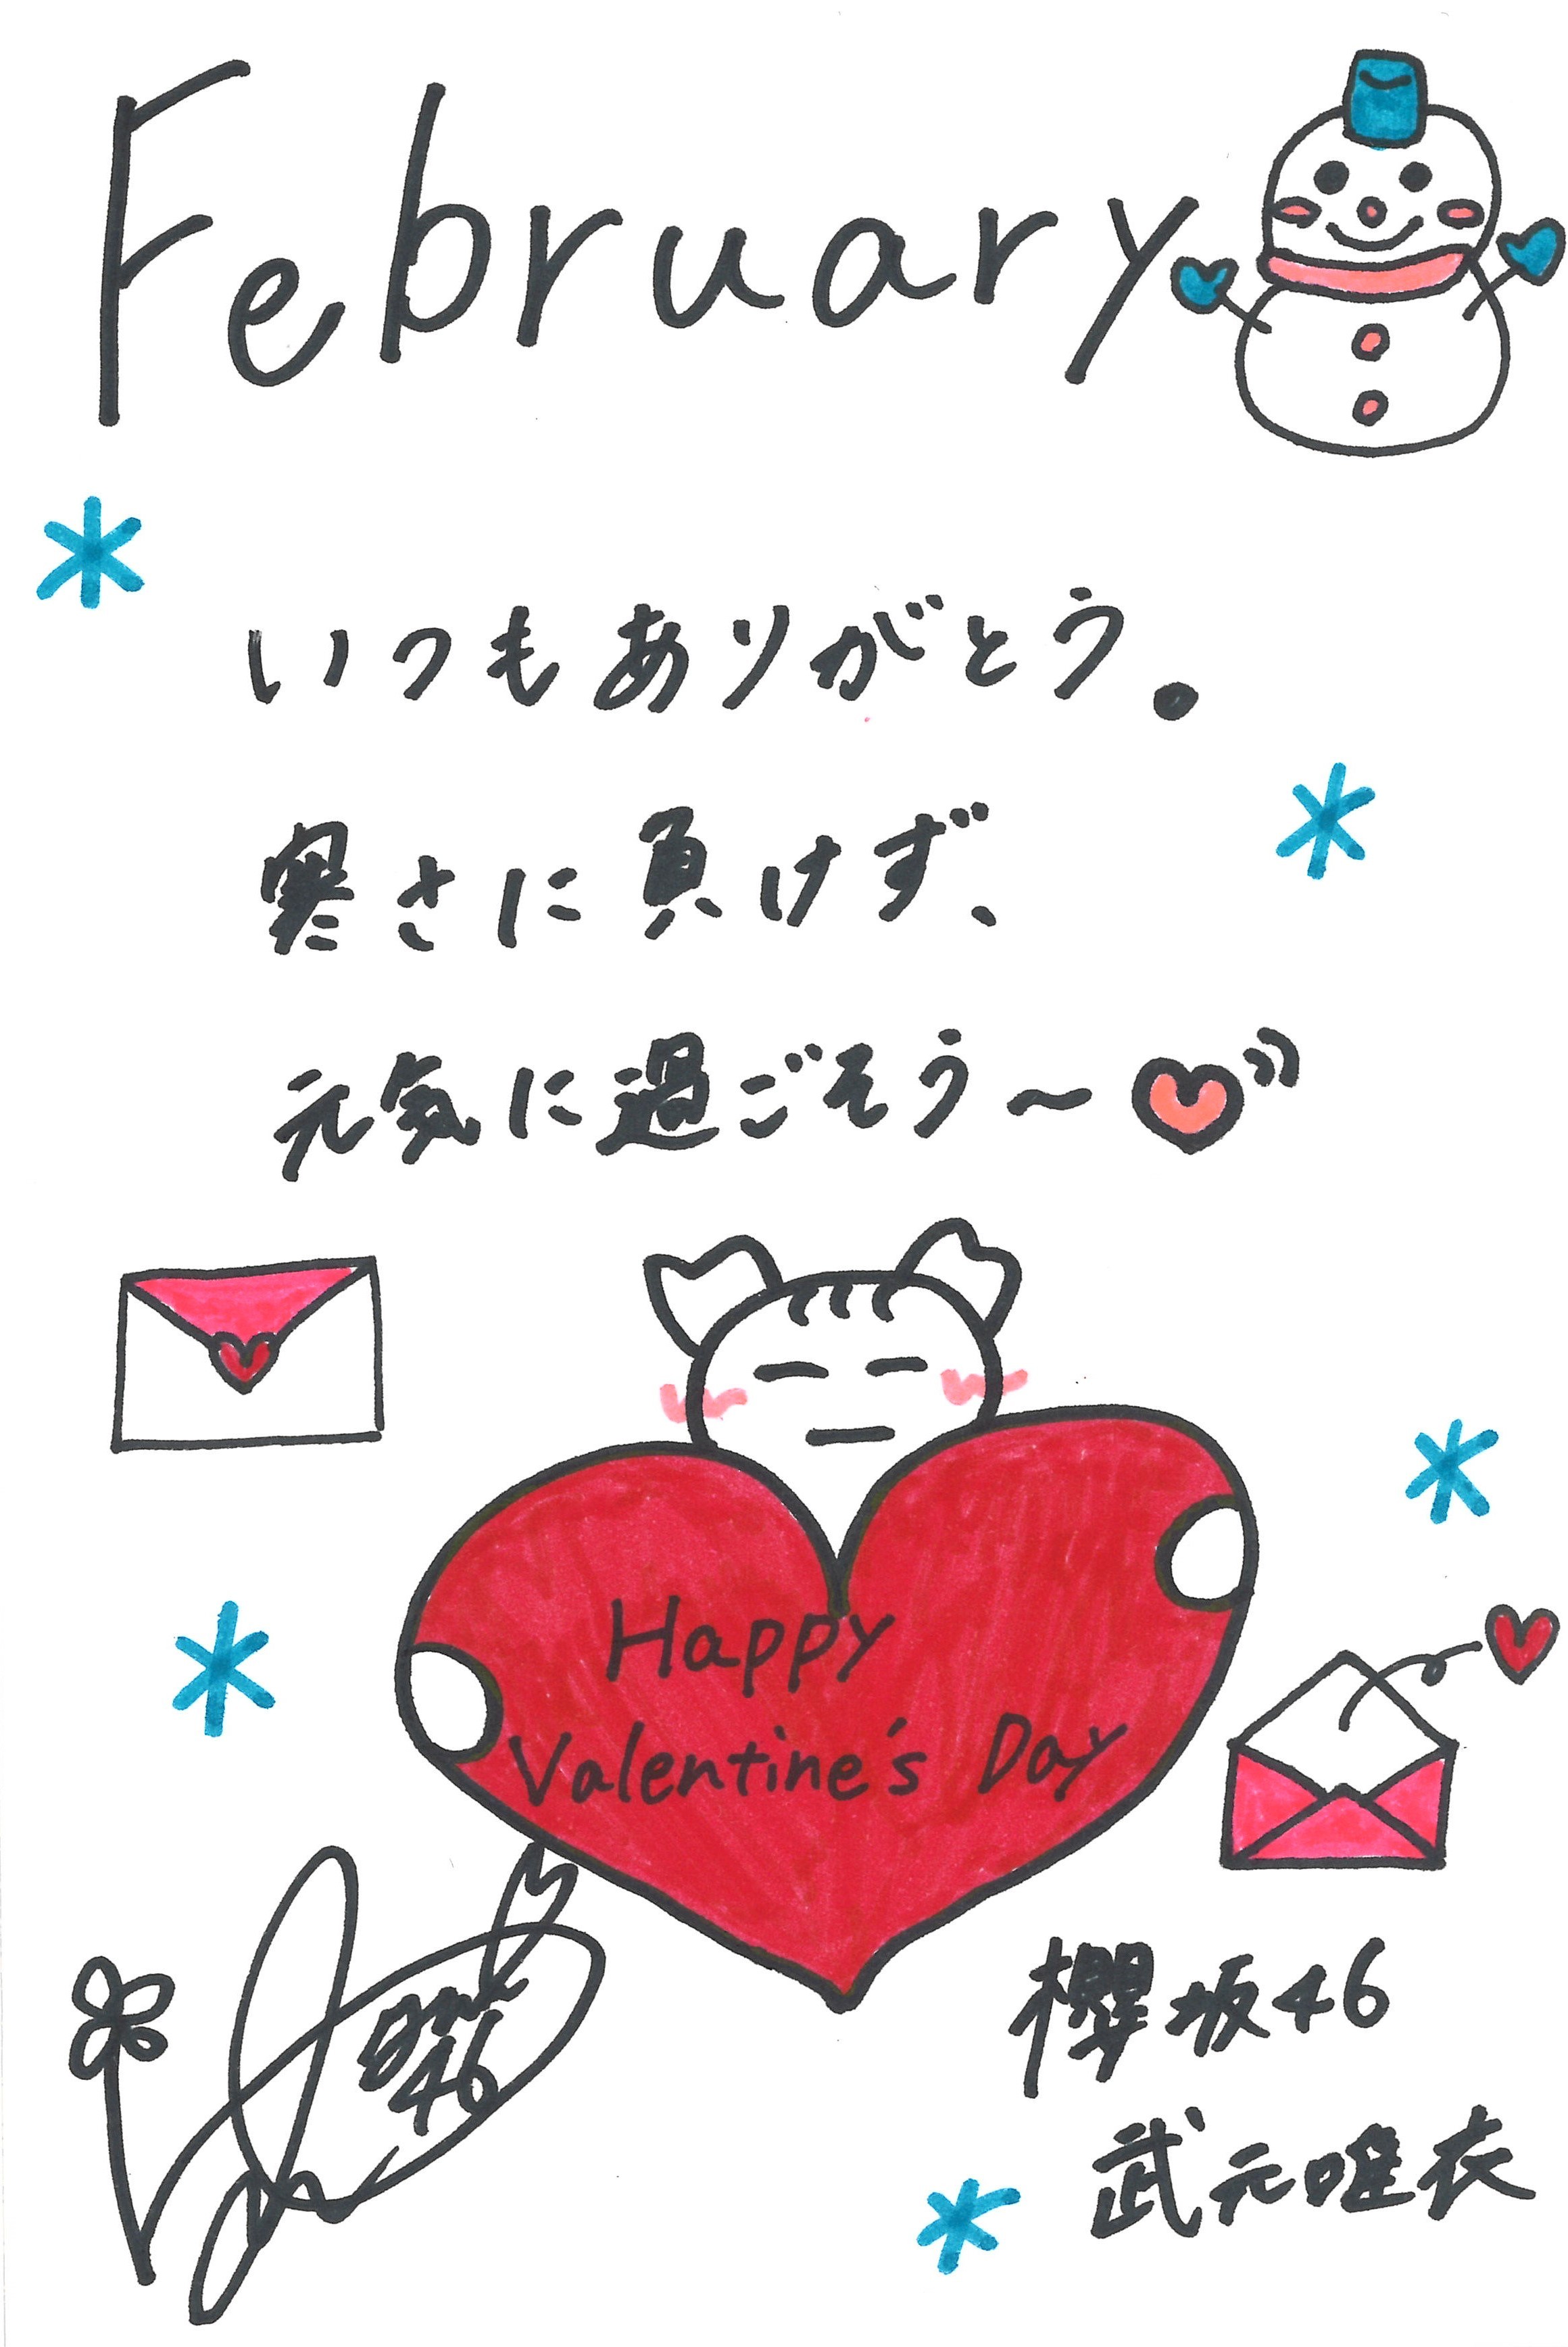 February
いつもありがとう。
寒さに負けず、
元気に過ごそう〜
Happy
Valentine's Day
46
櫻坂46
武元唯衣